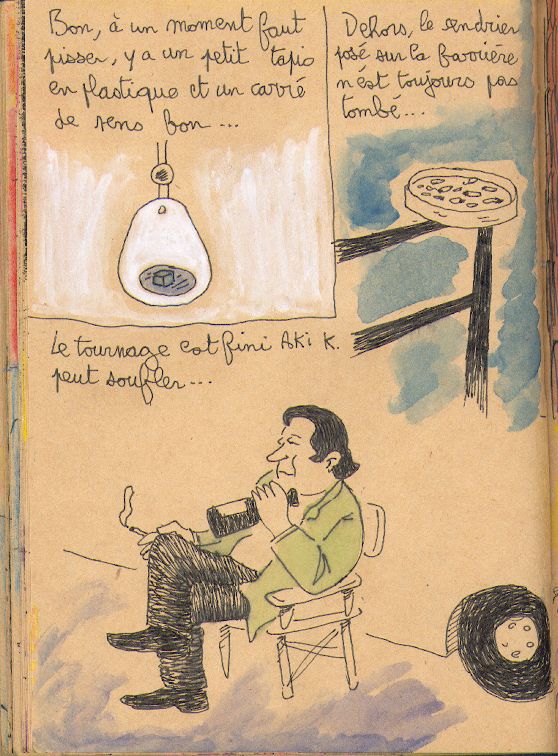 Bon, à un moment faut
pisser, y a un petit tapis
en plastique et un carré
de sens bon...
Dehors, le cendrier
posé sur la barrière
n'est toujours pas
tombé...
Le tournage est fini AKi K.
peut souffler...